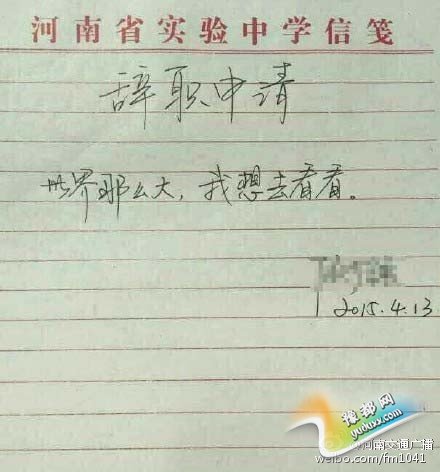 河南省实验中学信笺
辞职申请
世界那么大，我想去看看。
2015.4.13
豫都网
yuduxx.com
@河南交通广播
weibo.com/fm1041